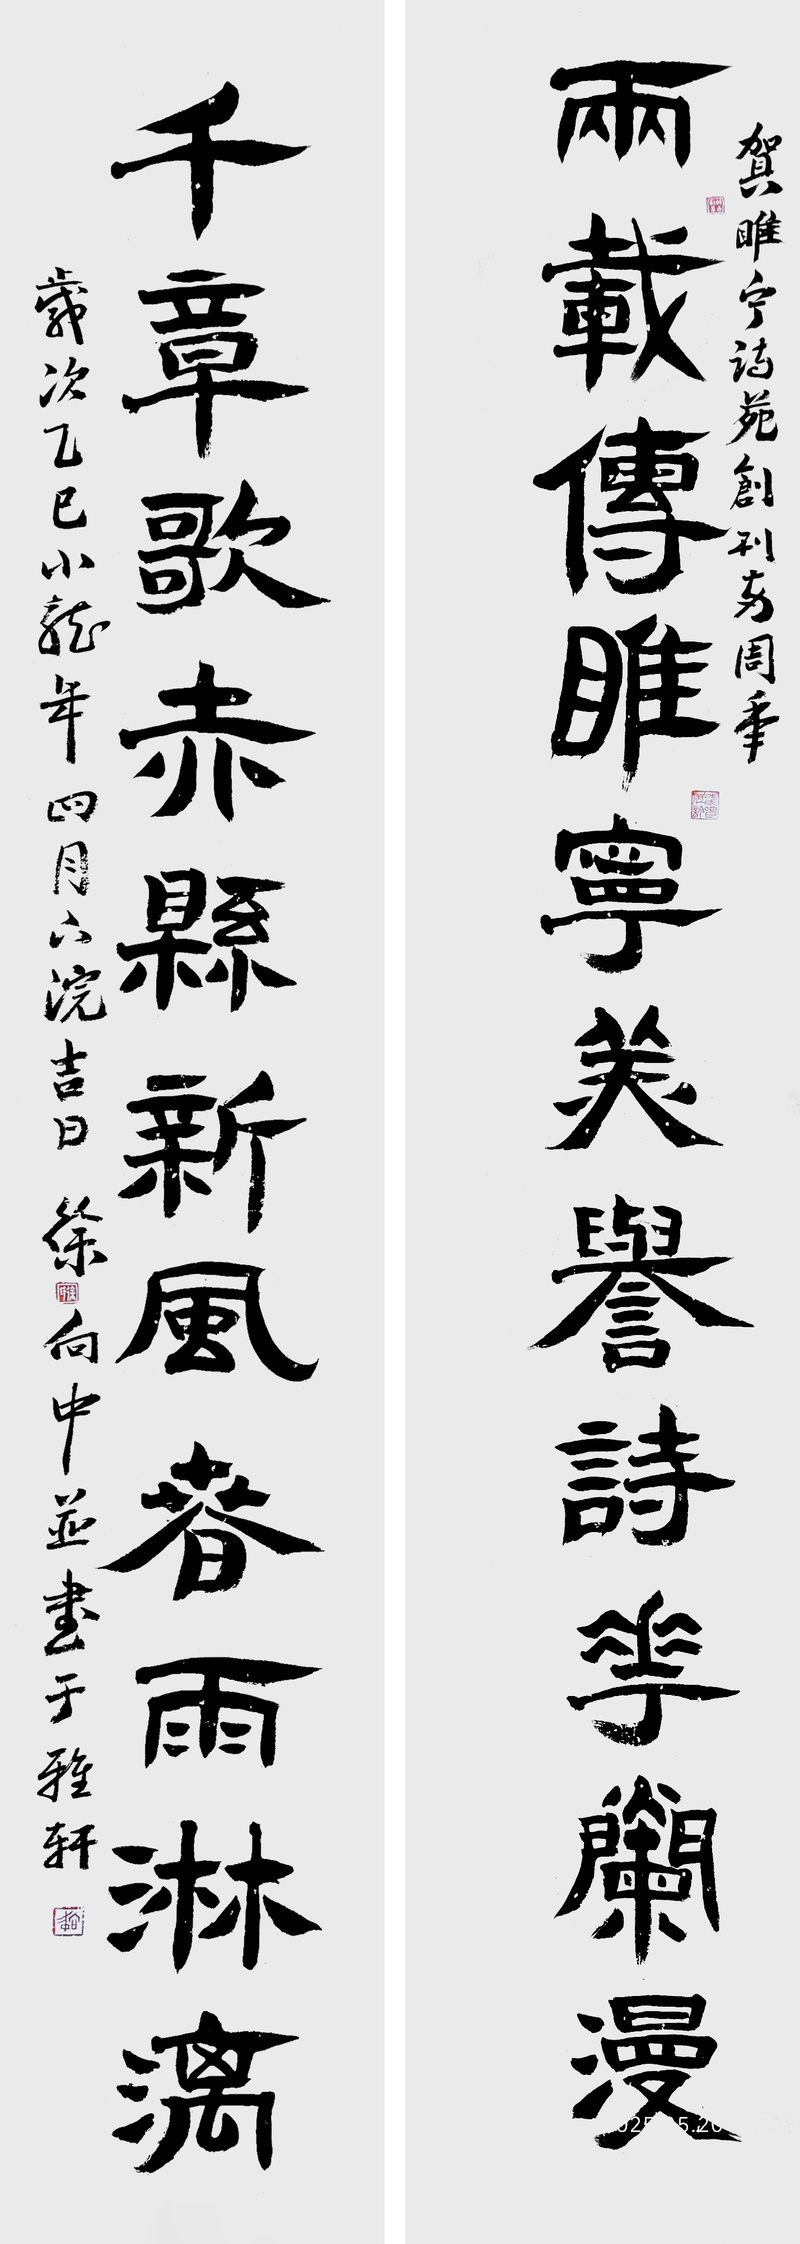 賀睢宁诗苑創刊两周年
兩載傳睢寧美譽詩華蘭漫
千章歌赤縣新風春雨淋漓
歲次乙巳小龍年四月下浣吉日 徐向中並書于雅轩